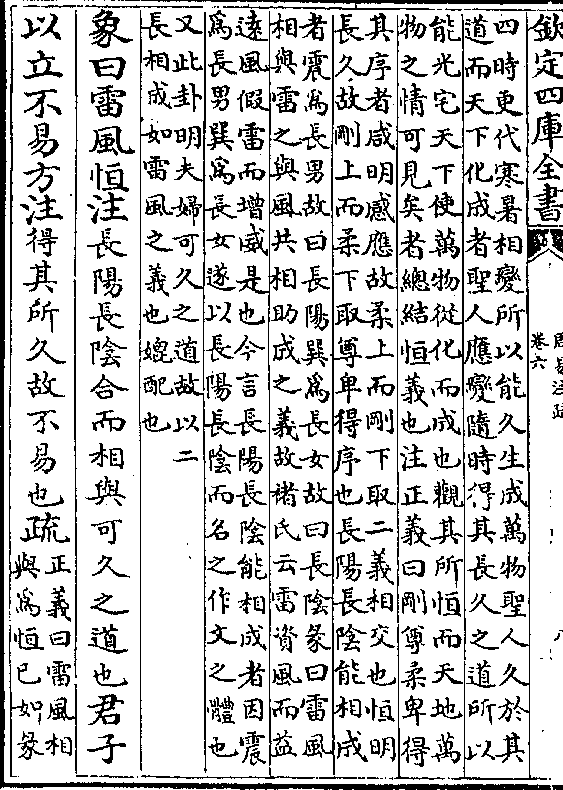 欽定四庫全書
周易注疏
卷六
八
四時更代寒暑相變所以能久生成萬物聖人久於其
道而天下化成者聖人應變隨時得其長久之道所以
能光宅天下使萬物從化而成也觀其所恒而天地萬
物之情可見矣者總結恒義也注正義曰剛尊柔卑得
其序者咸明感應故柔上而剛下取二義相交也恒明
長久故剛上而柔下取尊卑得序也長陽長陰能相成
者震爲長男故曰長陽巽爲長女故曰長陰彖曰雷風
相與雷之與風共相助成之義故褚氏云雷資風而益
遠風假雷而增威是也今言長陽長陰能相成者因震
爲長男巽爲長女遂以長陽長陰而名之作文之體也
又此卦明夫婦可久之道故以二
長相成如雷風之義也媲配也
象曰雷風恒注長陽長陰合而相與可久之道也君子
以立不易方注得其所久故不易也疏
正義曰雷風相
與爲恒已如彖